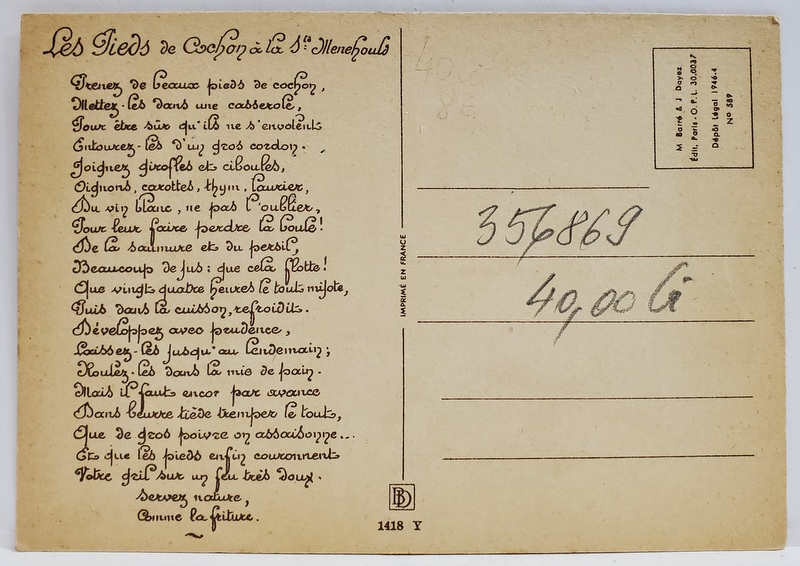 Les Pieds de Cochon à la Ste Menehould
Prenez de beaux pieds de cochon,
Mettez-les dans une casserole,
Pour être sûr qu'ils ne s'envolent
Entourez-les d'un gros cordon.
Joignez girofles et ciboules,
Oignons, carottes, thym, laurier,
Du vin blanc, ne pas l'oublier,
Pour leur faire perdre la boule!
De la saumure et du persil,
Beaucoup de jus: que cela flotte!
Que vingt quatre heures le tout mijote,
Puis dans la cuisson, refroidit.
Développez avec prudence,
Laissez-les jusqu'au lendemain;
Roulez-les dans la mie de pain.
Mais il faut encor par avance
Dans beurre tiède tremper le tout,
Que de gros poivre on assaisonne...
Et que les pieds enfin couronnent
Votre gril sur un feu très doux.
Servez nature,
Comme la friture.
IMPRIMÉ EN FRANCE
BD
1418 Y
M Barré & J Dayez
Édit. Paris - O.P.L 30.0037
Dépôt Légal 1946-4
No 589
356869
40,00